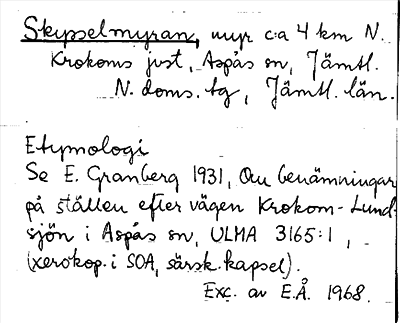 Skipselmyran, myr c:a 4 km N.
Krokoms jvst, Aspås sn, Jämtl.
N. doms. tg, Jämtl. län.
Etymologi
Se E. Granberg 1931, Om benämningar
på ställen efter vägen Krokom-Lund-
sjön i Aspås sn, ULMA 3165:1,
(xerokop. i SOA, särsk. kapsel).
Exc. av E.Å. 1968.